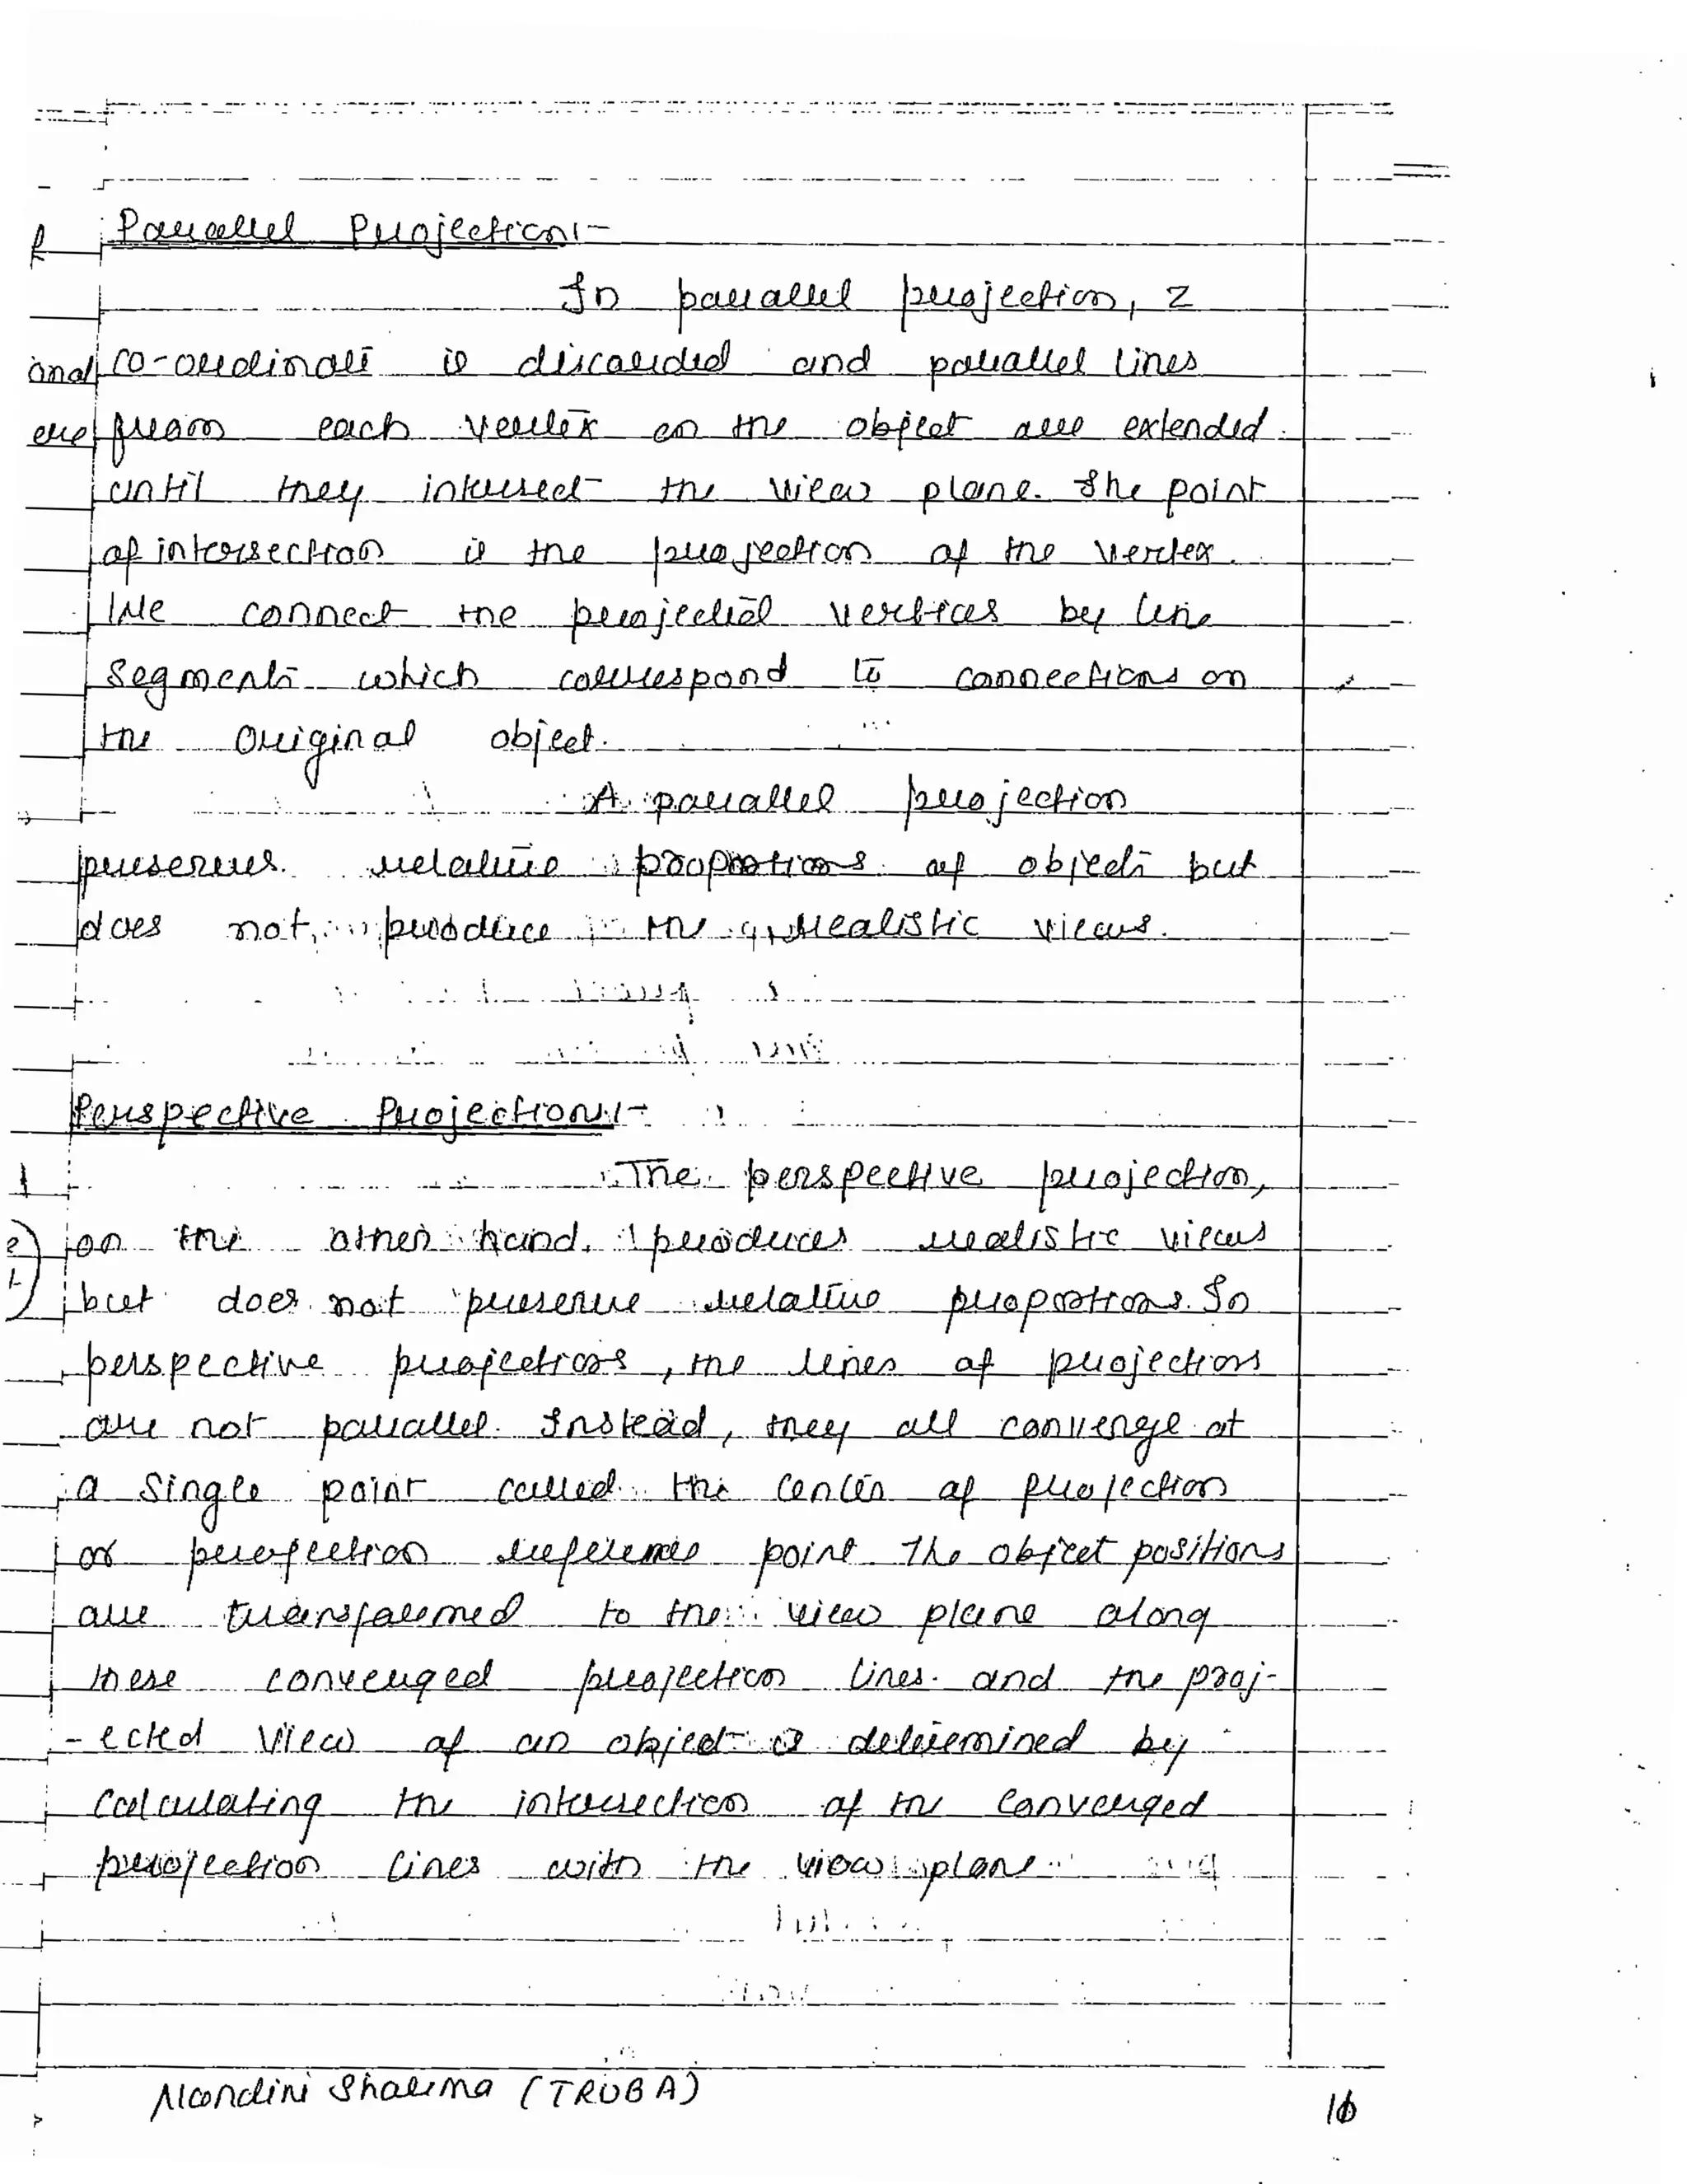 Parallel Projection:-
In parallel projection, z
co-ordinate is discarded and parallel lines
from each vertex on the object are extended
until they intersect the view plane. The point
of intersection is the projection of the vertex.
We connect the projected vertices by line
segments which correspond to connections on
the original object.
A parallel projection
preserves relative proportions of objects but
does not produce the realistic views.
Perspective Projection:-
The perspective projection,
on the other hand, produces realistic views
but does not preserve relative proportions. In
perspective projections, the lines of projection
are not parallel. Instead, they all converge at
a single point called the center of projection
or projection reference point. The object positions
are transformed to the view plane along
these converged projection lines. and the proj-
-ected view of an object is determined by
calculating the intersection of the converged
projection lines with the view plane
Nandini Sharma (TRUBA)